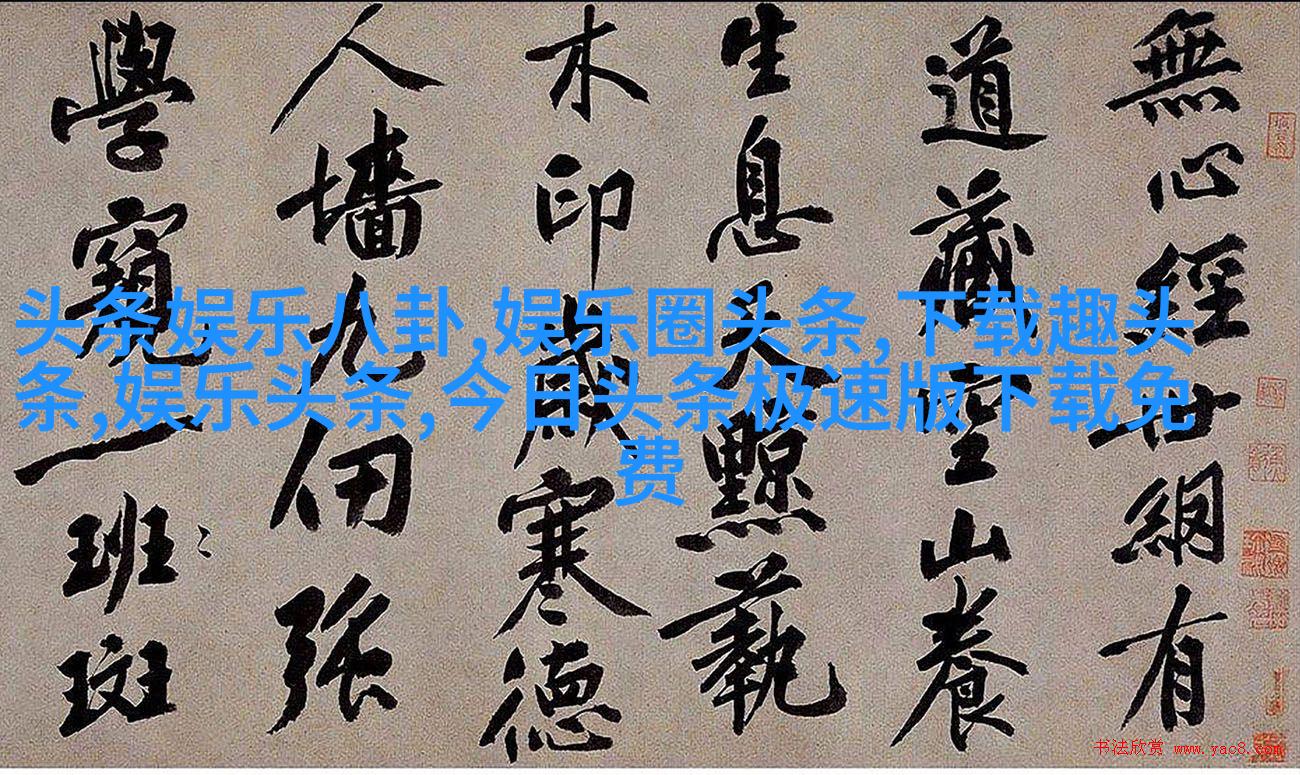 头条娱乐八卦,娱乐圈头条,下载趣头
条,娱乐头条,今日头条极速版下载免
费
無心經世網有
道藏空山養
生息天黥蓺
木印歲寒德
人墻九仞强
學窺一班斑
书法欣赏 www.yac8.com